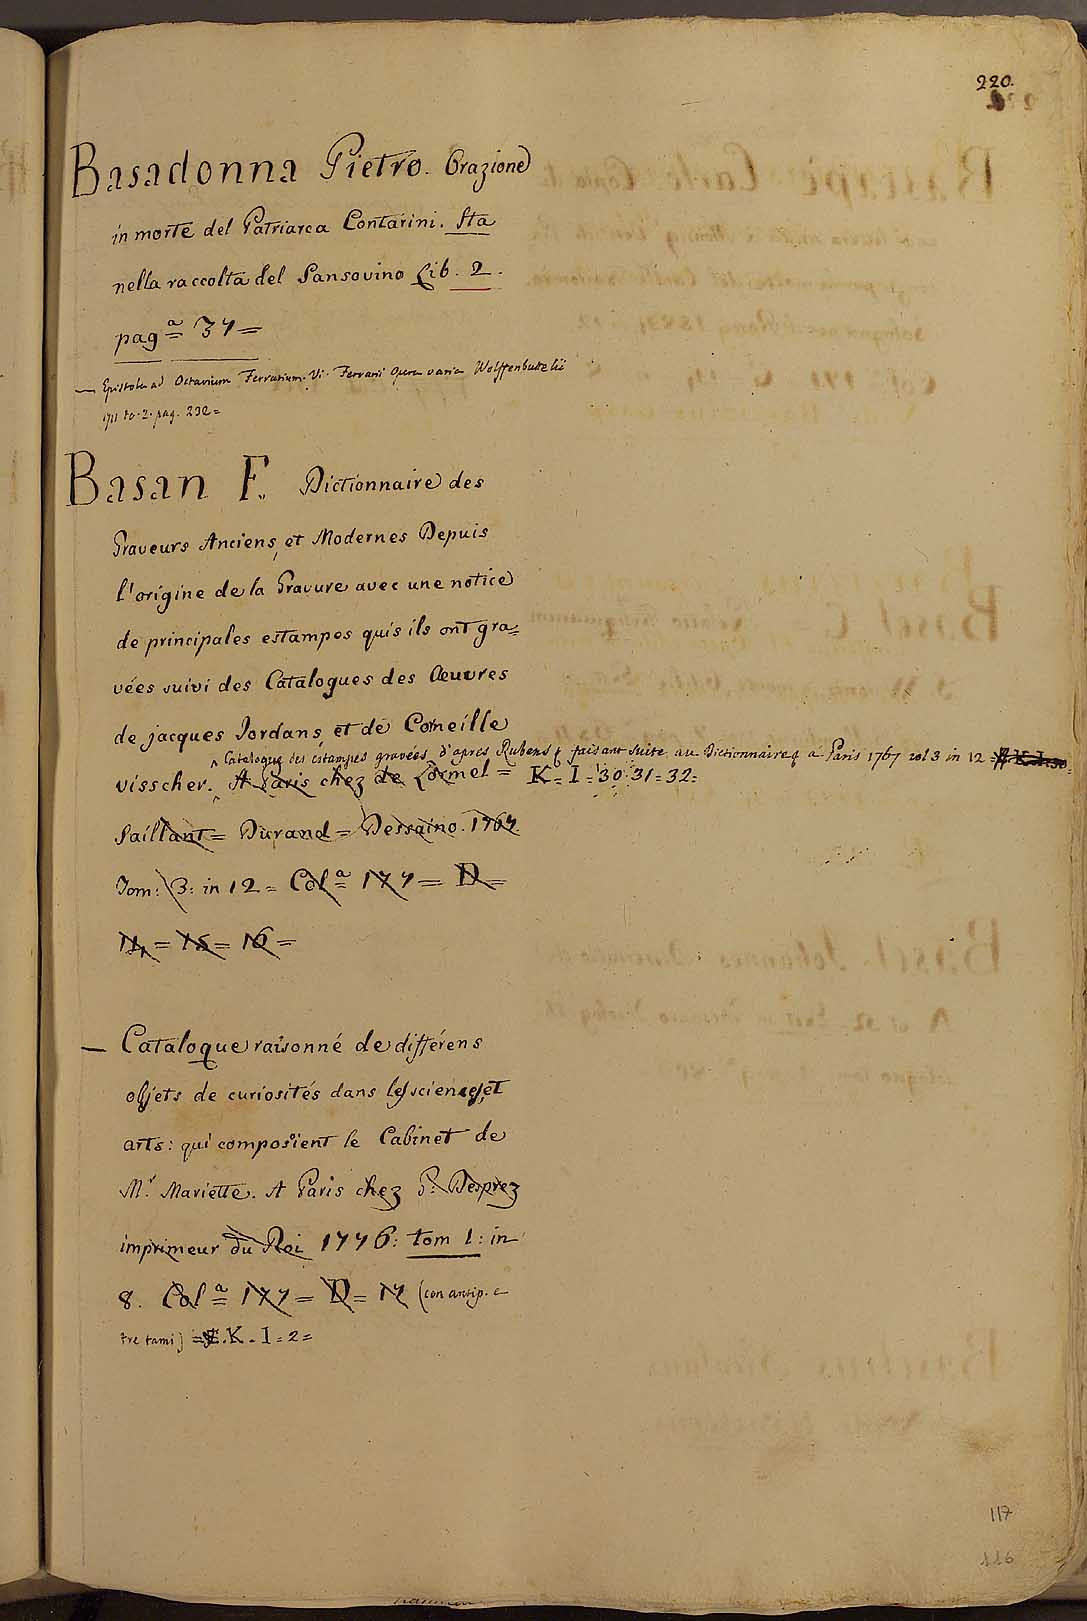 220.
Basadonna Pietro. Orazione
in morte del Patriarca Contarini. Sta
nella raccolta del Sansovino Lib. 2.
pagª 37=
— Epistola ad Octavium Ferrarium. Vi. Ferrarii Opera varia Wolffenbuttelii
1711 to. 2. pag. 232=
Basan F. Dictionnaire des
Graveurs Anciens, et Modernes Depuis
l'origine de la Gravure avec une notice
de principales estampes quis ils ont gra=
vées suivi des Catalogues des Œuvres
de jacques Jordans, et de Corneille
^ Catalogue des estampes gravées d'apres Rubens faisant suite au Dictionnaire a Paris 1767 vol 3 in 12 =
visscher. A Paris chez de Lormel = K=I=30.31=32=
Saillant= Durand= Dessaino. 1767
Tom: 3: in 12= Colª 177= D=
14=15=16=
— Cataloque raisonné de différens
objets de curiosités dans les sciences, et
arts: qui composient le Cabinet de
M.r Mariette. A Paris chez G: Desprez
imprimeur du Roi 1776: tom 1: in
8. Colª 177= D= 17 (con antip. e
tre rami) = K-I=2=
117
116